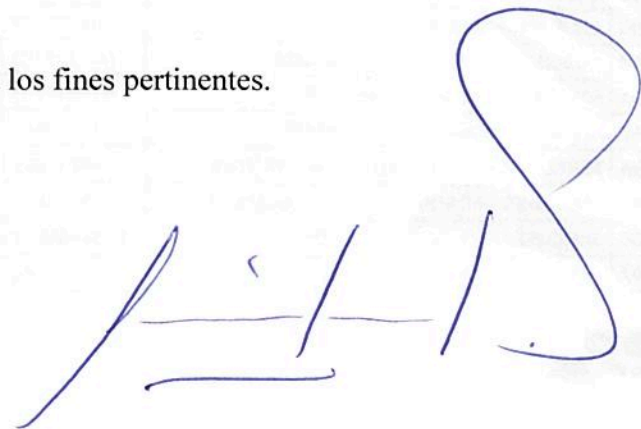 los fines pertinentes.